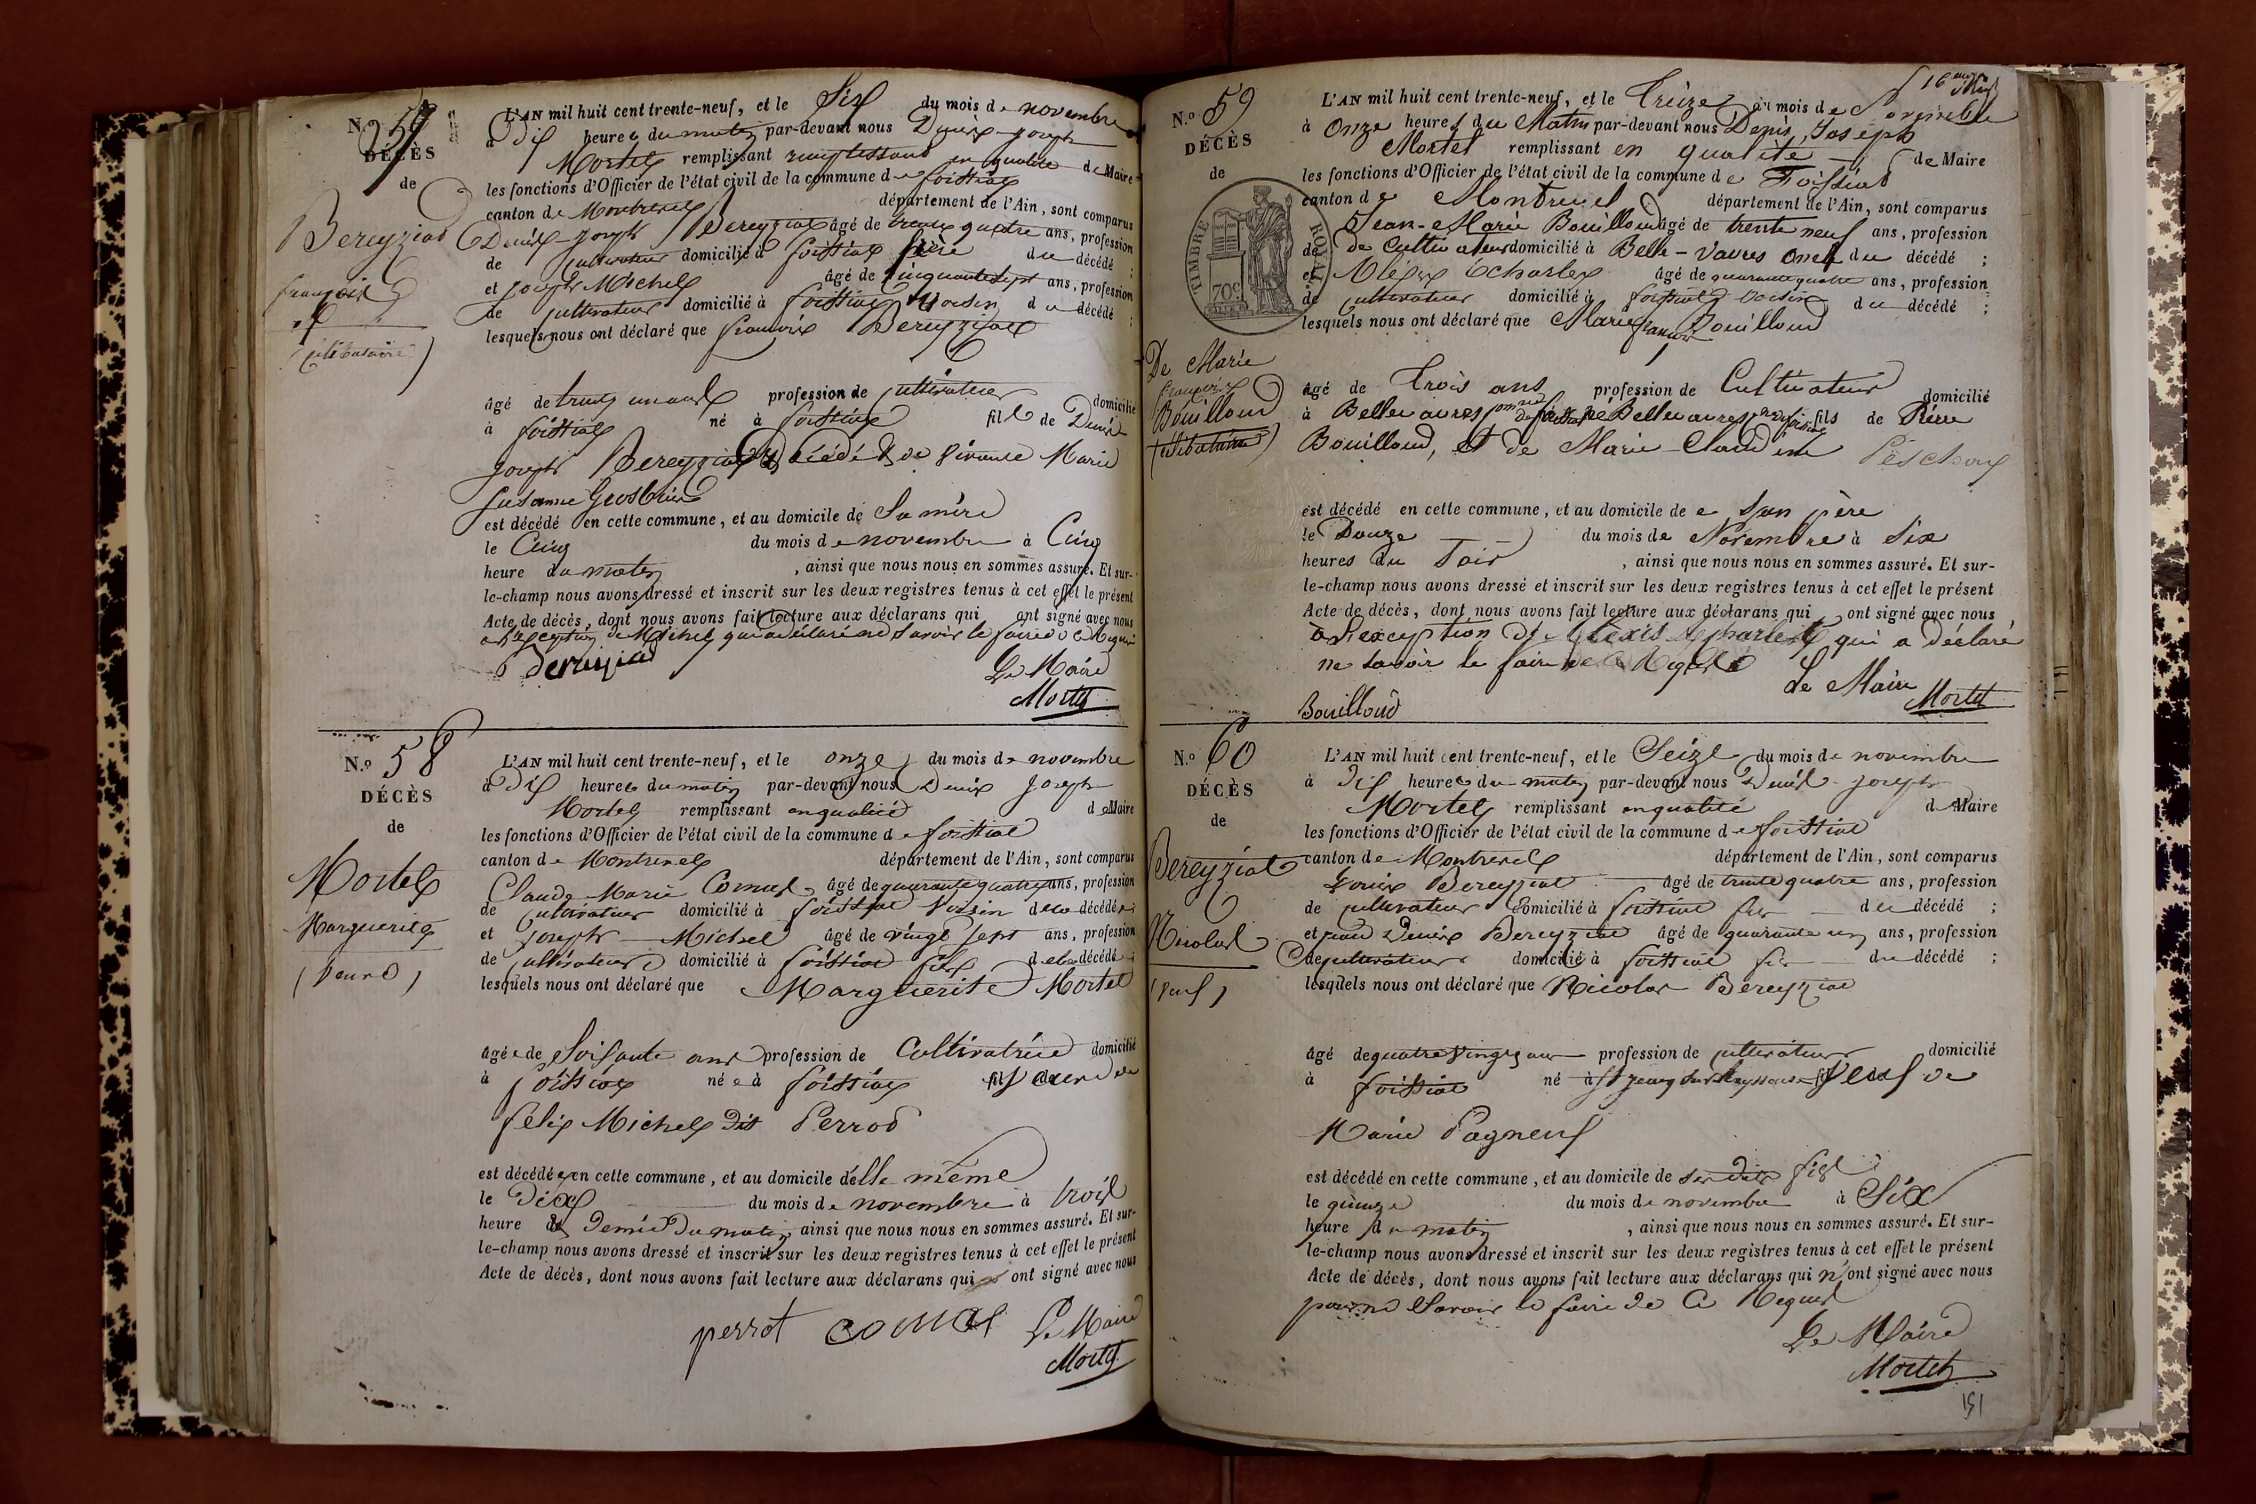 N.º 57
DÉCÈS
de
Bereyziat
françois
(célibataire)
L'AN mil huit cent trente-neuf, et le Six du mois de novembre
à Dix heures du matin par-devant nous Denis joseph
Mortel remplissant remplissant en qualité de Maire
les fonctions d'Officier de l'état civil de la commune de foissiat
canton de Montrevel département de l'Ain, sont comparus
Denis joseph Bereyziat âgé de trente quatre ans, profession
de cultivateur domicilié à foissiat frère du décédé ;
et joseph Michel âgé de cinquante sept ans, profession
de cultivateur domicilié à foissiat voisin du décédé ;
lesquels nous ont déclaré que françois Bereyziat
âgé de trente un ans profession de cultivateur domicilié
à foissiat né à foissiat fils de Denis
joseph Bereyziat décédé & de vivante Marie
Susanne
est décédé en cette commune, et au domicile de Sa mère
le Cinq du mois de novembre à Cinq
heure du matin , ainsi que nous nous en sommes assuré. Et sur-
le-champ nous avons dressé et inscrit sur les deux registres tenus à cet effet le présent
Acte de décès, dont nous avons fait lecture aux déclarans qui ont signé avec nous
à l'exception de Michel qui a déclaré ne Savoir le faire de ce Requis
bereyziat
Le Maire
Mortel
N.º 58
DÉCÈS
de
Mortel
Marguerite
(veuve)
L'AN mil huit cent trente-neuf, et le onze du mois de novembre
à Dix heures du matin par-devant nous Denis joseph
Mortel remplissant en qualité de Maire
les fonctions d'Officier de l'état civil de la commune de foissiat
canton de Montrevel département de l'Ain, sont comparus
Claude Marie Comas âgé de quarante quatre ans, profession
de cultivateur domicilié à foissiat voisin de la décédée ;
et joseph Michel âgé de vingt sept ans, profession
de cultivateur domicilié à foissiat fils de la décédée ;
lesquels nous ont déclaré que Marguerite Mortel
âgée de Soixante ans profession de Cultivatrice domicilié
à foissiat née à foissiat veuve de
félix Michel dit Perrod
est décédée en cette commune, et au domicile d'elle même
le Dix du mois de novembre à trois
heure & Demie Du matin ainsi que nous nous en sommes assuré. Et sur-
le-champ nous avons dressé et inscrit sur les deux registres tenus à cet effet le présent
Acte de décès, dont nous avons fait lecture aux déclarans qui ont signé avec nous
perrot comas Le Maire
Mortel
16
N.º 59
DÉCÈS
de
TIMBRE ROYAL
70c
De Marie
françois
Bouilloud
(célibataire)
L'AN mil huit cent trente-neuf, et le Treize du mois de Novembre
à Onze heures du Matin par-devant nous Denis, Joseph
Mortel remplissant en qualité de Maire
les fonctions d'Officier de l'état civil de la commune de Foissiat
canton de Montrevel département de l'Ain, sont comparus
Jean-Marie Bouilloud âgé de trente neuf ans, profession
de De Cultivateur domicilié à Belle-Vavres oncle du décédé ;
et Alexis Echarlet âgé de quarante quatre ans, profession
de cultivateur domicilié à foissiat voisin du décédé ;
lesquels nous ont déclaré que Marie françois Bouilloud
âgé de Trois ans profession de Cultivateur domicilié
à Bellevavres né Bellevavres fils de Pierre
Bouilloud, et de Marie-Claudine
est décédé en cette commune, et au domicile de Son père
le Douze du mois de Novembre à Six
heures du Soir , ainsi que nous nous en sommes assuré. Et sur-
le-champ nous avons dressé et inscrit sur les deux registres tenus à cet effet le présent
Acte de décès, dont nous avons fait lecture aux déclarans qui ont signé avec nous
à l'exception d'Alexis Echarlet qui a déclaré
ne savoir le faire de ce Requis
Le Maire
Bouilloud Mortel
N.º 60
DÉCÈS
de
Bereyziat
Nicolas
(veuf)
L'AN mil huit cent trente-neuf, et le Seize du mois de novembre
à Dix heures du matin par-devant nous Denis joseph
Mortel remplissant en qualité de Maire
les fonctions d'Officier de l'état civil de la commune de foissiat
canton de Montrevel département de l'Ain, sont comparus
Bereyziat âgé de trente quatre ans, profession
de cultivateur domicilié à foissiat fils du décédé ;
et jean Denis Bereyziat âgé de quarante un ans, profession
de cultivateur domicilié à foissiat fils du décédé ;
lesquels nous ont déclaré que Nicolas Bereyziat
âgé de quatre vingts ans profession de cultivateur domicilié
à foissiat né à St jean sur Reyssouze veuf de
Marie Pagneux
est décédé en cette commune, et au domicile de ses dits fils
le quinze du mois de novembre à Six
heure du matin , ainsi que nous nous en sommes assuré. Et sur-
le-champ nous avons dressé et inscrit sur les deux registres tenus à cet effet le présent
Acte de décès, dont nous avons fait lecture aux déclarans qui n'ont signé avec nous
pour ne Savoir le faire de Ce Requis
Le Maire
Mortel
151